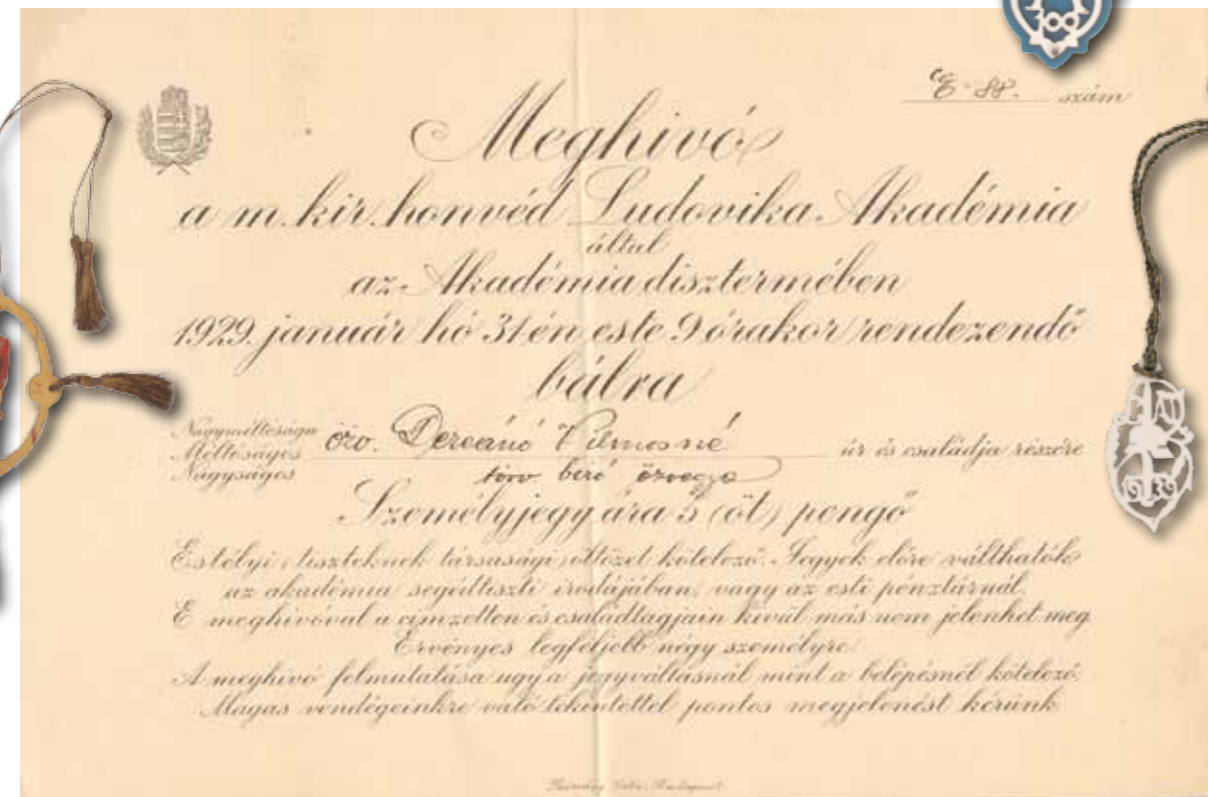 100
szám
Meghivó
a m. kir. honvéd Ludovika Akadémia
által
az Akadémia disztermében
1929. január hó 31 én este 9 órakor rendezendő
bálra
Nagyméltóságu
Méltóságos özv. Vilmosné úr és családja részére
Nagyságos biró özvegye
Személyjegy ára 5 (öt) pengő
Estélyi, tiszteknek társasági öltözet kötelező. Jegyek előre válthatók
az akadémia segédtiszti irodájában, vagy az esti pénztárnál.
E meghivóval a cimzetten és családtagjain kívül más nem jelenhet meg
Érvényes legfeljebb négy személyre.
A meghivó felmutatása ugy a jegyváltásnál mint a belépésnél kötelező.
Magas vendégeinkre való tekintettel pontos megjelenést kérünk
Budapest